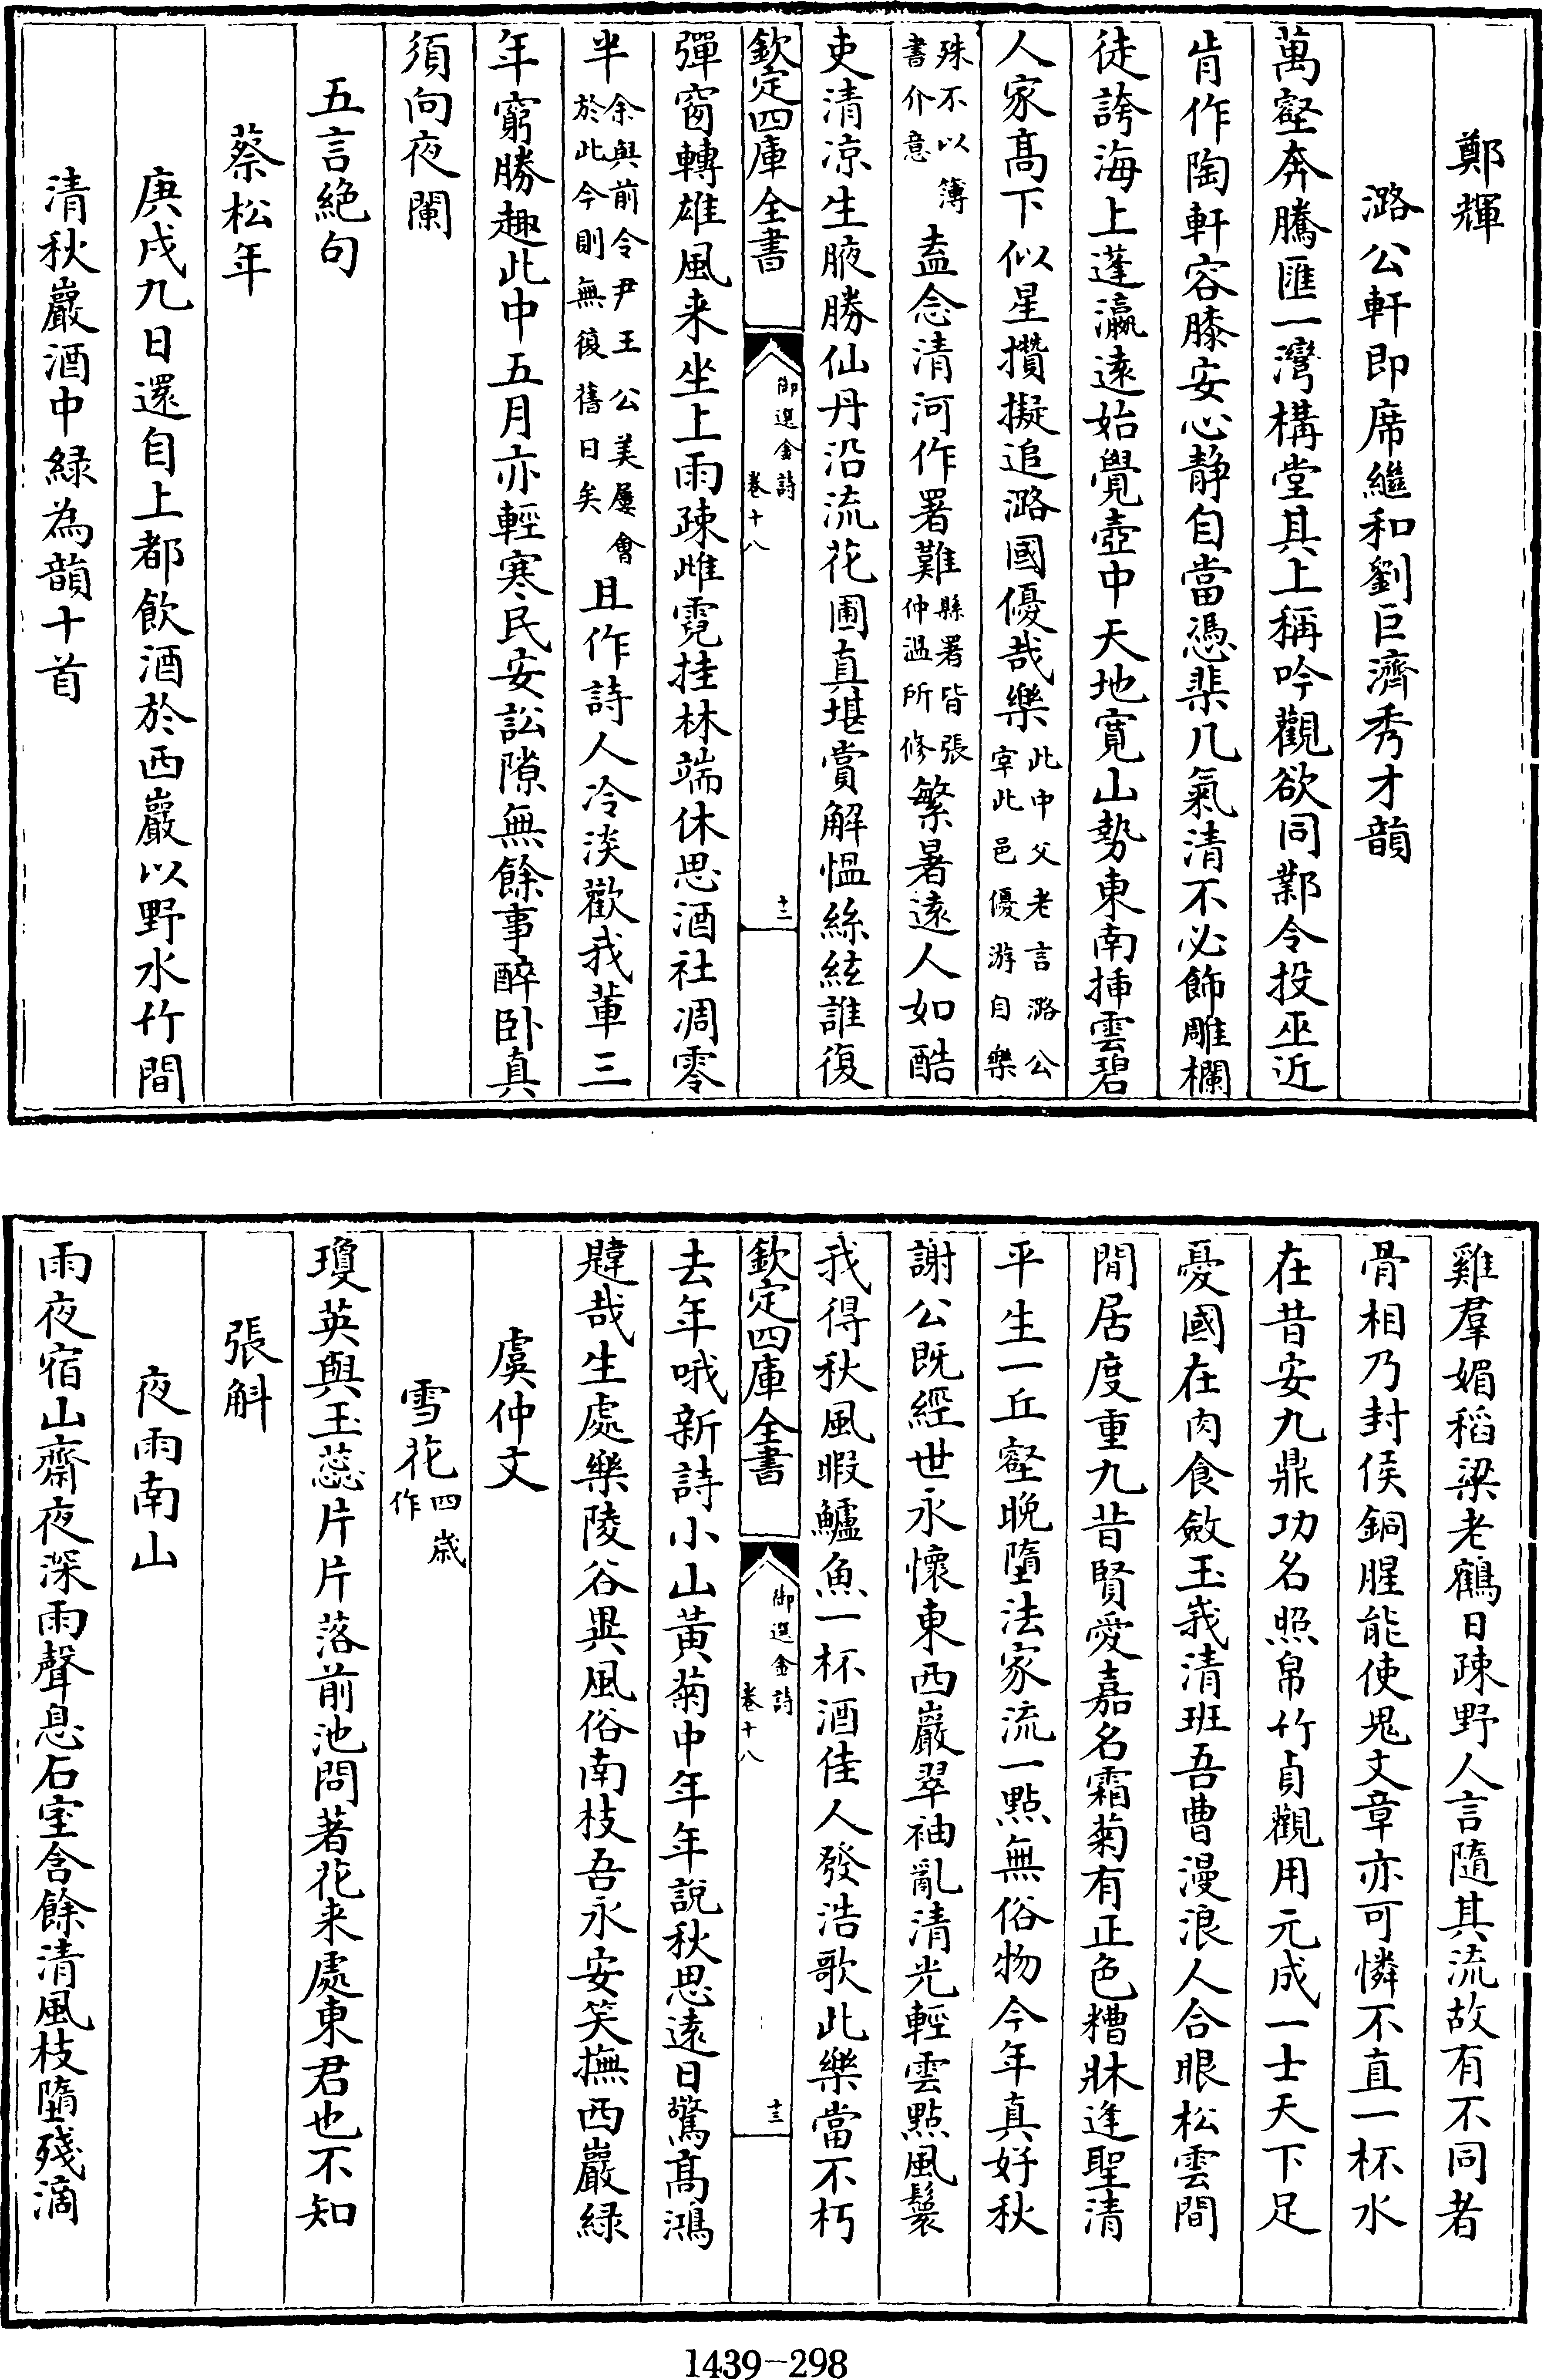 鄭輝
潞公軒即席繼和劉巨濟秀才韻
萬壑奔騰匯一灣構堂其上稱吟觀欲同鄴令投巫近
肯作陶軒容膝安心静自當憑棐几氣清不必飾雕欄
徒誇海上蓬瀛逺始覺壺中天地寛山勢東南揷雲碧
人家髙下似星攢擬追潞國優哉樂此中父老言潞公宰此邑優游自樂
殊不以簿書介意盍念清河作署難縣署皆張仲温所修繁暑逺人如酷
吏清凉生腋勝仙丹沿流花圃真堪賞解愠絲絃誰復
欽定四庫全書
御選金詩
卷十八
十二
彈窗轉雄風来坐上雨疎雌霓挂林端休思酒社凋零
半余與前令尹王公美屢會於此今則無復舊日矣且作詩人冷淡歡我輩三
年窮勝趣此中五月亦輕寒民安訟隙無餘事醉卧真
須向夜闌
五言絶句
蔡松年
庚戌九日還自上都飲酒於西巖以野水竹間
清秋巖酒中緑為韻十首
雞羣媚稻粱老鶴日疎野人言隨其流故有不同者
骨相乃封侯銅腥能使鬼文章亦可憐不直一杯水
在昔安九鼎功名照帛竹貞觀用元成一士天下足
憂國在肉食斂玉峩清班吾曹漫浪人合眼松雲間
閒居度重九昔賢愛嘉名霜菊有正色糟牀逢聖清
平生一丘壑晚墮法家流一點無俗物今年真好秋
謝公既經世永懷東西巖翠袖亂清光輕雲點風鬟
我得秋風暇鱸魚一杯酒佳人發浩歌此樂當不朽
欽定四庫全書
御選金詩
卷十八
十三
去年哦新詩小山黄菊中年年說秋思逺日驚髙鴻
韙哉生處樂陵谷異風俗南枝吾永安笑撫西巖緑
虞仲文
雪花四歲作
瓊英與玉蕊片片落前池問著花来處東君也不知
張斛
夜雨南山
雨夜宿山齋夜深雨聲息石室含餘清風枝墮殘滴
1439-298